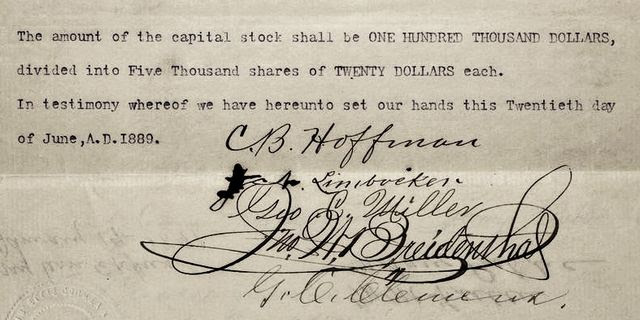 The amount of the capital stock shall be ONE HUNDRED THOUSAND DOLLARS,
divided into Five Thousand shares of TWENTY DOLLARS each.
In testimony whereof we have hereunto set our hands this Twentieth day
of June,A.D.1889.
C.B. Hoffman
Limbocker
Geo E. Miller
Jno. W. Breidenthal
G. C. Clemens.